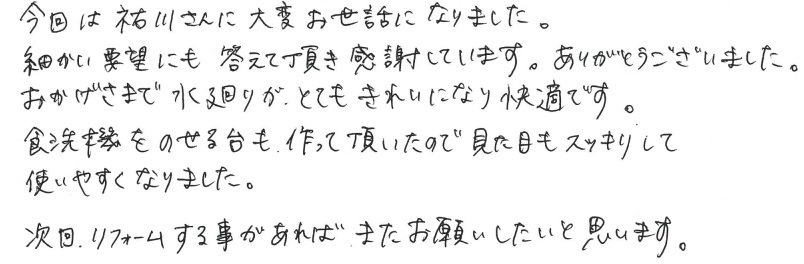 今回は祐川さんに大変お世話になりました。
細かい要望にも答えて頂き感謝しています。ありがとうございました。
おかげさまで水廻りが、とてもきれいになり快適です。
食洗機をのせる台も、作って頂いたので見た目もスッキリして
使いやすくなりました。
次回、リフォームする事があればまたお願いしたいと思います。